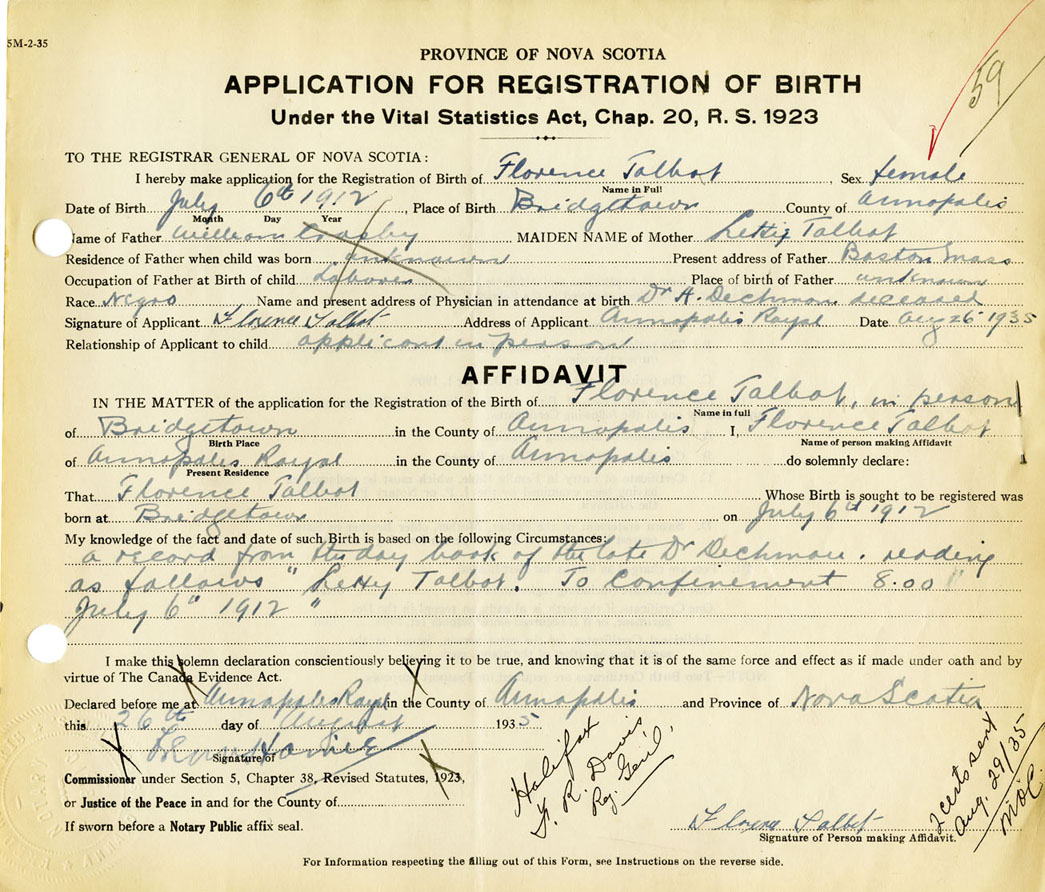 5M-2-35
59
PROVINCE OF NOVA SCOTIA
APPLICATION FOR REGISTRATION OF BIRTH
Under the Vital Statistics Act, Chap. 20, R. S. 1923
TO THE REGISTRAR GENERAL OF NOVA SCOTIA:
I hereby make application for the Registration of Birth of Florence Talbot, Sex female
Name in Full
Date of Birth July 6th 1912, Place of Birth Bridgetown County of Annapolis
Month Day Year
Name of Father William Crosby MAIDEN NAME of Mother Letty Talbot
Residence of Father when child was born unknown Present address of Father Boston Mass
Occupation of Father at Birth of child Laborer Place of birth of Father unknown
Race Negro Name and present address of Physician in attendance at birth Dr A. Dechman deceased
Signature of Applicant Florence Talbot Address of Applicant Annapolis Royal Date Aug 26 1935
Relationship of Applicant to child applicant in person
AFFIDAVIT
IN THE MATTER of the application for the Registration of the Birth of Florence Talbot, in person
Name in full
of Bridgetown in the County of Annapolis I, Florence Talbot
Birth Place Name of person making Affidavit
of Annapolis Royal in the County of Annapolis do solemnly declare:
Present Residence
That Florence Talbot Whose Birth is sought to be registered was
born at Bridgetown on July 6th 1912
My knowledge of the fact and date of such Birth is based on the following Circumstances:
a record from the day book of the late Dr Dechman. reading
as follows " Letty Talbot. To Confinement 8.00 "
July 6" 1912 "
I make this solemn declaration conscientiously believing it to be true, and knowing that it is of the same force and effect as if made under oath and by
virtue of The Canada Evidence Act.
Declared before me at Annapolis Royal in the County of Annapolis and Province of Nova Scotia
this 26th day of August 1935
Signature of
Commissioner under Section 5, Chapter 38, Revised Statutes, 1923,
or Justice of the Peace in and for the County of
If sworn before a Notary Public affix seal.
Halifax
R. Davis
Reg. Genl.
Florence Talbot
Signature of Person making Affidavit.
2 certs sent
Aug. 29/35
For Information respecting the filling out of this Form, see Instructions on the reverse side.